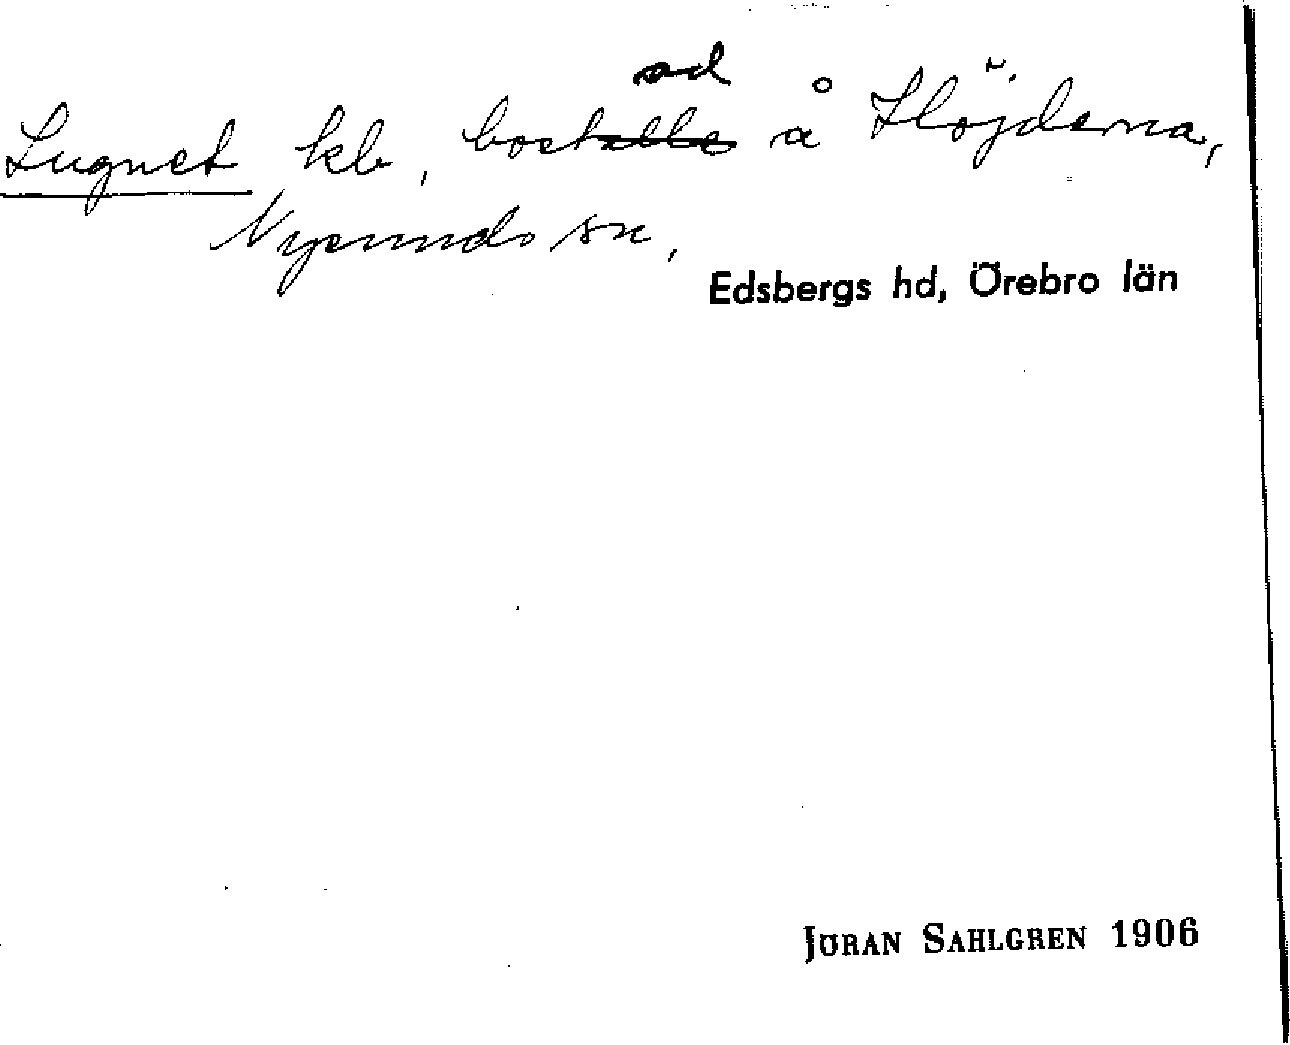 ad
Lugnet kb, boställe å Höjderna,
Nysunds sn,
Edsbergs hd, Örebro län
JÖRAN SAHLGREN 1906